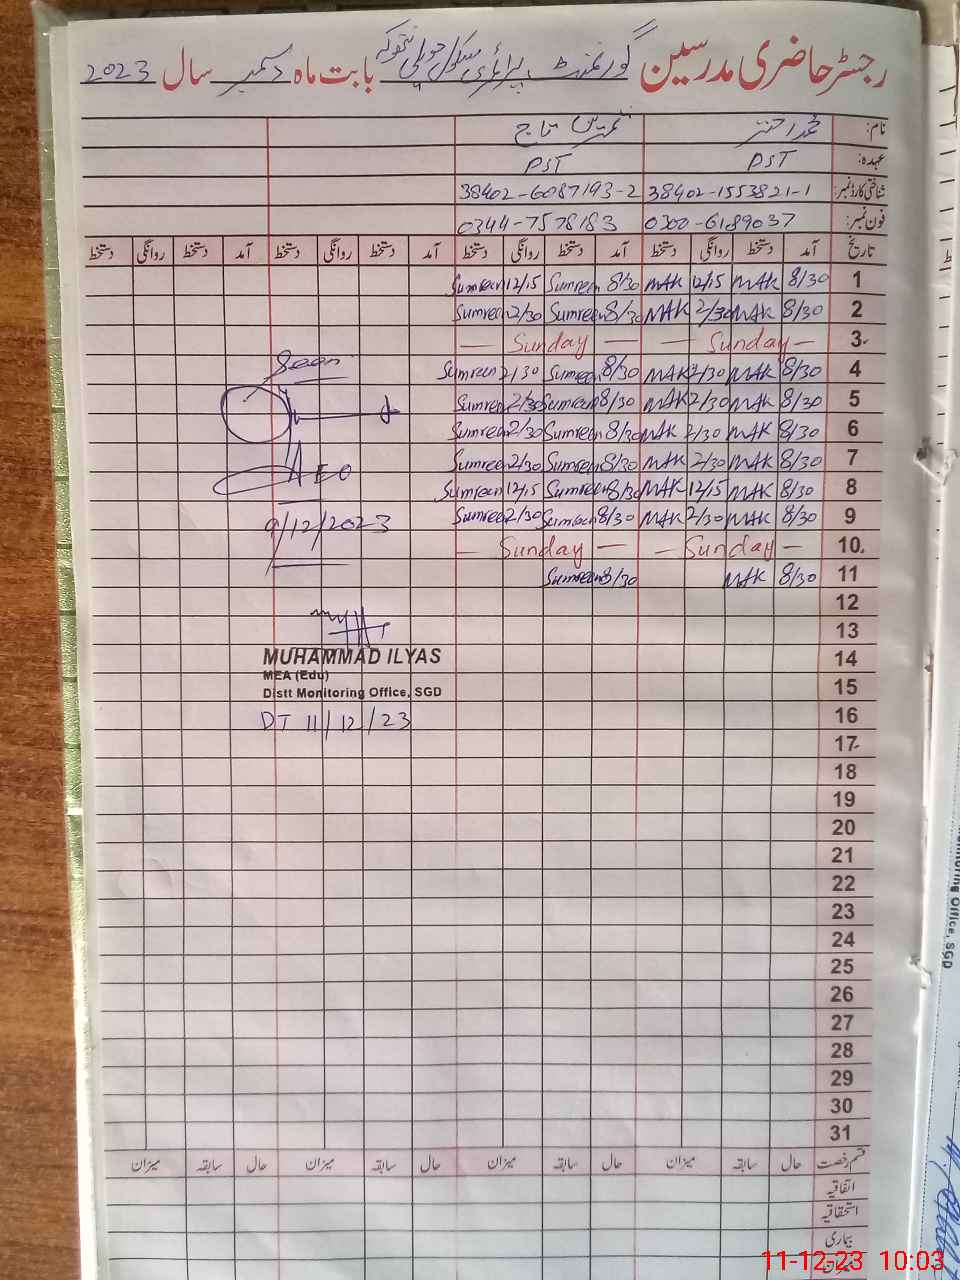 رجسٹر حاضری مدرسین گورنمنٹ پرائمری سکول حویلی نتھوکہ بابت ماہ دسمبر سال 2023
نام: محمد اختر ثمرین تاج
عہدہ: PST PST
شناختی کارڈ نمبر: 38402-1553821-1 38402-6087193-2
فون نمبر: 0300-6189037 0344-7578183
تاریخ آمد دستخط روانگی دستخط آمد دستخط روانگی دستخط آمد دستخط روانگی دستخط آمد دستخط روانگی دستخط
1 8/30 MAK 12/15 MAK 8/30 Sumreen 12/15 Sumreen
2 8/30 MAK 2/30 MAK 8/30 Sumreen 2/30 Sumreen
3 — Sunday — — Sunday —
4 8/30 MAK 2/30 MAK 8/30 Sumreen 2/30 Sumreen
5 8/30 MAK 2/30 MAK 8/30 Sumreen 2/30 Sumreen
6 8/30 MAK 2/30 MAK 8/30 Sumreen 2/30 Sumreen
7 8/30 MAK 2/30 MAK 8/30 Sumreen 2/30 Sumreen
8 8/30 MAK 12/15 MAK 8/30 Sumreen 12/15 Sumreen
9 8/30 MAK 2/30 MAK 8/30 Sumreen 2/30 Sumreen
10 — Sunday — — Sunday —
11 8/30 MAK 8/30 Sumreen
12
13
14
15
16
17
18
19
20
21
22
23
24
25
26
27
28
29
30
31
Seen
AEO
9/12/2023
MUHAMMAD ILYAS
MEA (Edu)
Distt Monitoring Office, SGD
DT 11/12/23
قسم رخصت حال سابقہ میزان حال سابقہ میزان حال سابقہ میزان حال سابقہ میزان
اتفاقیہ
استحقاقیہ
بیماری
میزان
Monitoring Office, SGD
11-12-23 10:03